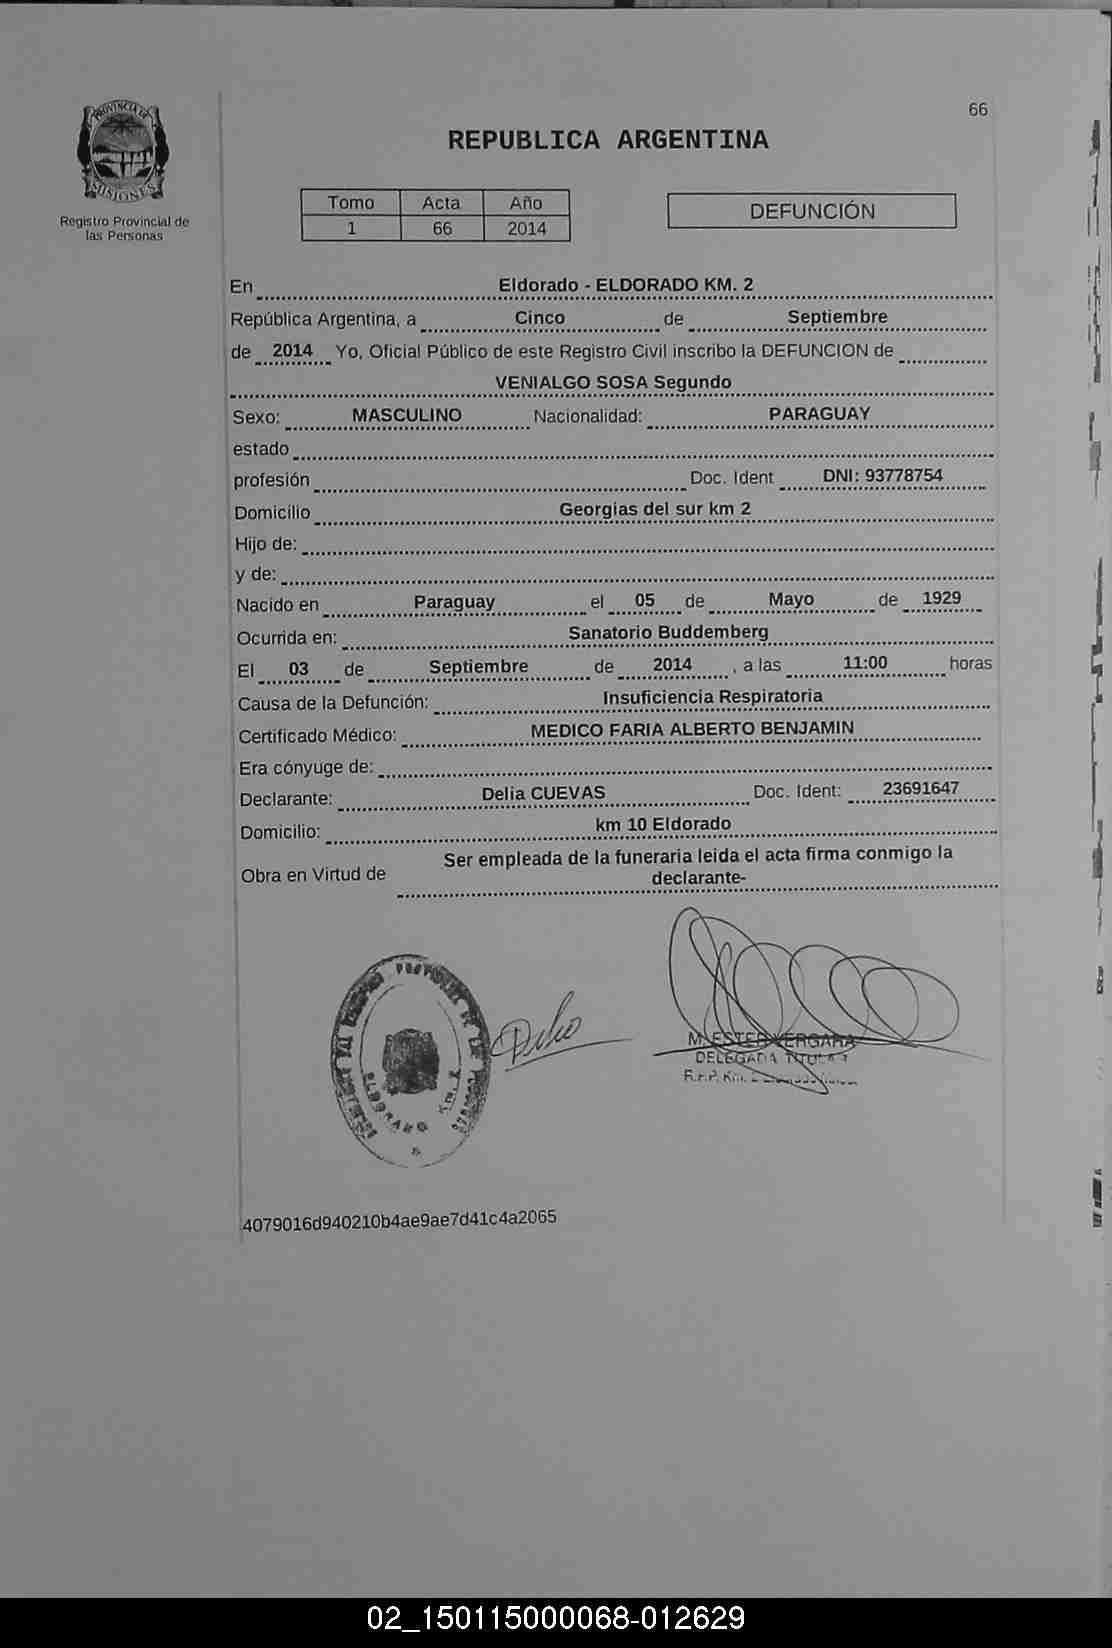 66
PROVINCIA DE
MISIONES
Registro Provincial de
las Personas
REPUBLICA ARGENTINA
Tomo Acta Año
1 66 2014
DEFUNCIÓN
En Eldorado - ELDORADO KM. 2
República Argentina, a Cinco de Septiembre
de 2014 Yo, Oficial Público de este Registro Civil inscribo la DEFUNCION de
VENIALGO SOSA Segundo
Sexo: MASCULINO Nacionalidad: PARAGUAY
estado
profesión Doc. Ident DNI: 93778754
Domicilio Georgias del sur km 2
Hijo de:
y de:
Nacido en Paraguay el 05 de Mayo de 1929
Ocurrida en: Sanatorio Buddemberg
El 03 de Septiembre de 2014 , a las 11:00 horas
Causa de la Defunción: Insuficiencia Respiratoria
Certificado Médico: MEDICO FARIA ALBERTO BENJAMIN
Era cónyuge de:
Declarante: Delia CUEVAS Doc. Ident: 23691647
Domicilio: km 10 Eldorado
Obra en Virtud de Ser empleada de la funeraria leida el acta firma conmigo la
declarante-
PROVINCIAL DE LAS
ELDORADO KM. 2
M. ESTER VERGARA
DELEGADA TITULAR
4079016d940210b4ae9ae7d41c4a2065
02_150115000068-012629